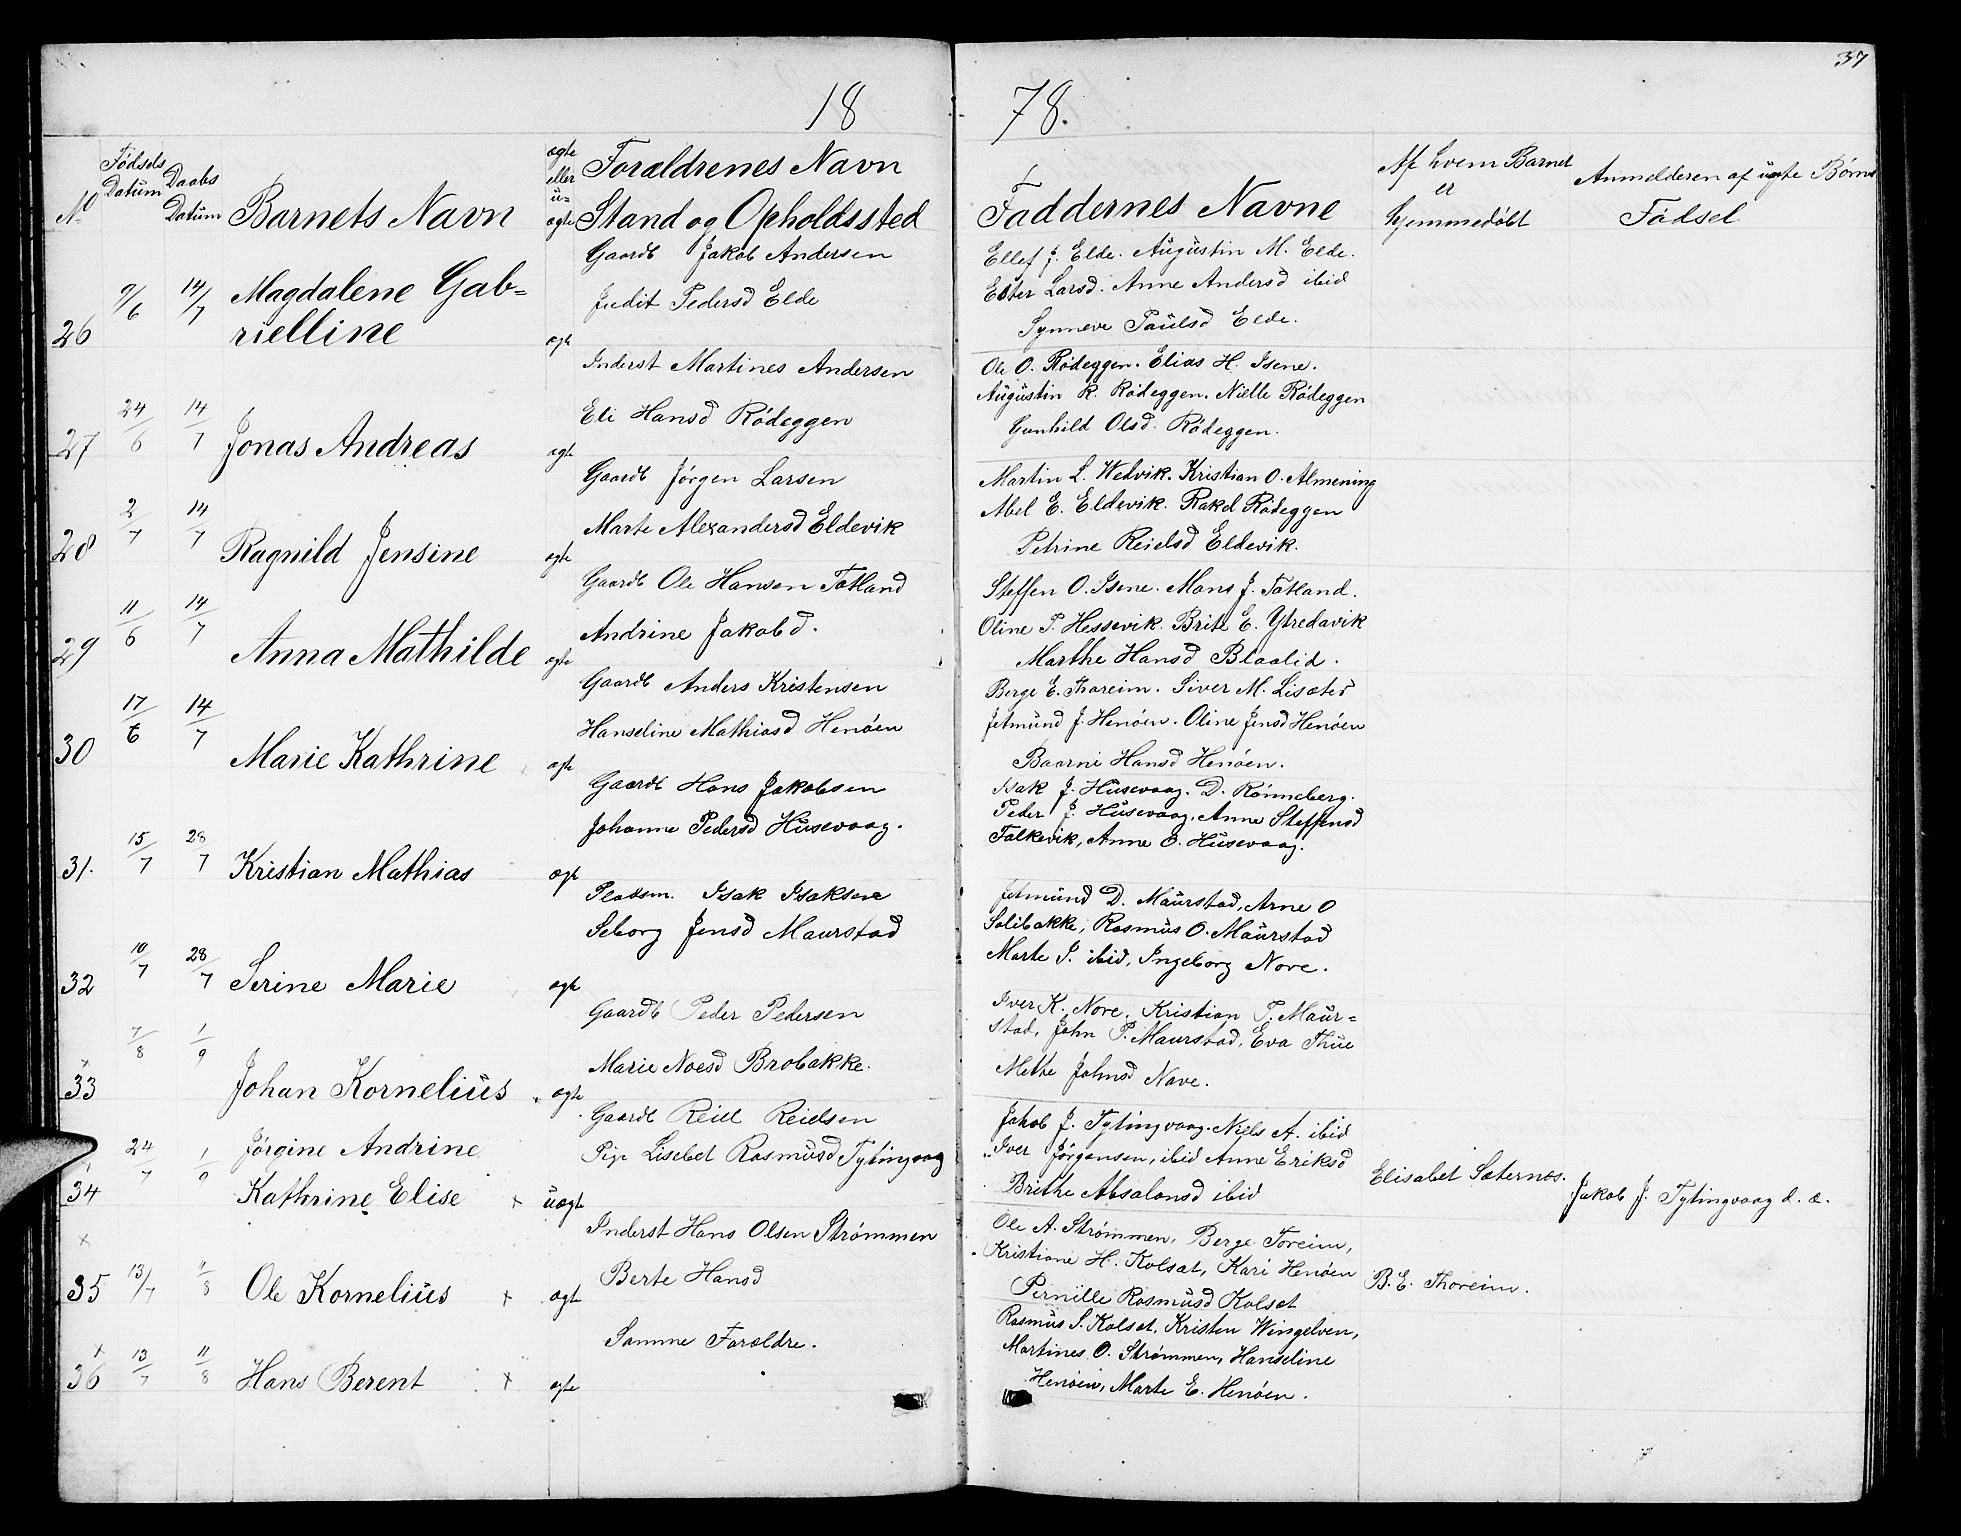 37
18 78.
No
Fødsels Datum
Daabs Datum
Barnets Navn
ægte eller u= ægte
Forældrenes Navn
Stand og Opholdssted
Faddernes Navne
Af hvem Barnet er hjemmedøbt
Anmelderen af uægte Børns Fødsel
26
9/6
14/7
Magdalene Gab=
rielline
ægte
Gaardb Jakob Andersen
Judit Pedersd Elde
Ellef J. Elde. Augustin M. Elde.
Ester Larsd. Anne Andersd ibid
Synneve Paulsd Elde.
27
24/6
14/7
Jonas Andreas
ægte
Inderst Martines Andersen
Eli Hansd Rødeggen
Ole O. Rødeggen. Elias H. Isene.
Augustin R. Rødeggen. Nielle Rødeggen
Gunhild Olsd. Rødeggen.
28
2/7
14/7
Ragnild Jensine
ægte
Gaardb Jørgen Larsen
Marte Alexandersd Eldevik
Martin L. Wedvik. Kristian O. Almening
Abel E. Eldevik. Rakel Rødeggen
Petrine Reielsd Eldevik.
29
11/6
14/7
Anna Mathilde
ægte
Gaardb Ole Hansen Totland
Andrine Jakobd.
Steffen O. Isene. Mons J. Totland.
Oline P. Hessevik. Brite E. Ytredavik
Marthe Hansd Blaalid.
30
17/6
14/7
Marie Kathrine
ægte
Gaardb Anders Kristensen
Hanseline Mathiasd Henøen
Berge E. Thoreim. Siver M. Lisæter
Jetmund J. Henøen. Oline Jensd Henøen
Baarni Hansd Henøen.
31.
15/7
28/7
Kristian Mathias
ægte
Gaardb Hans Jakobsen
Johanne Pedersd Husevaag.
Isak J. Husevaag. D. Rønneberg.
Peder J. Husevaag, Anne Steffensd
Falkevik, Anne O. Husevaag.
32
10/7
28/7
Serine Marie
ægte
Pladsm. Isak Isaksen
Seborg Jensd Maurstad
Jetmund D. Maurstad, Arne O
Solibakke, Rasmus O. Maurstad
Marte I. ibid, Ingeborg Nore.
x
33
7/8
1/9
Johan Kornelius
ægte
Gaardb Peder Pedersen
Marie Noesd Brobakke.
Iver K. Nore, Kristian P. Maur=
stad, John P. Maurstad, Eva Thue
Methe Johnsd Nave.
34
24/7
1/9
Jørgine Andrine
Kathrine Elise x
uægte
Gaardb Reiel Reielsen
Pige Lisebet Rasmusd Tytingvaag
Jakob J. Tytingvaag. Niels A. ibid
Iver Jørgensen, ibid Anne Eriksd
Brithe Absalonsd ibid
Elisabet Sæternæs.
Jakob J. Tytingvaag d. æ.
x
35
13/7
11/8
Ole Kornelius x
ægte
Inderst Hans Olsen Strømmen
Berte Hansd
Ole A. Strømmen, Berge Toreim,
Kristiane H. Kolsæt, Kari Henøen
Pernille Rasmusd Kolset
B. E. Thoreim.
x
36
13/7
11/8
Hans Berent x
ægte
Samme Forældre.
Rasmus S. Kolset, Kristen Wengelven,
Martines O. Strømmen, Hanseline
Henøen, Marte E. Henøen.